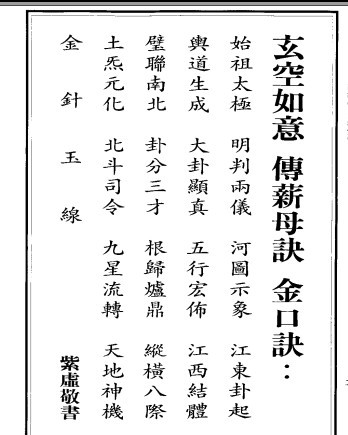 玄空如意 傳薪母訣 金口訣：
始祖太極 明判兩儀 河圖示象 江東卦起
輿道生成 大卦顯真 五行宏佈 江西結體
璧聯南北 卦分三才 根歸爐鼎 縱橫八際
土炁元化 北斗司令 九星流轉 天地神機
金針玉線 紫虛敬書